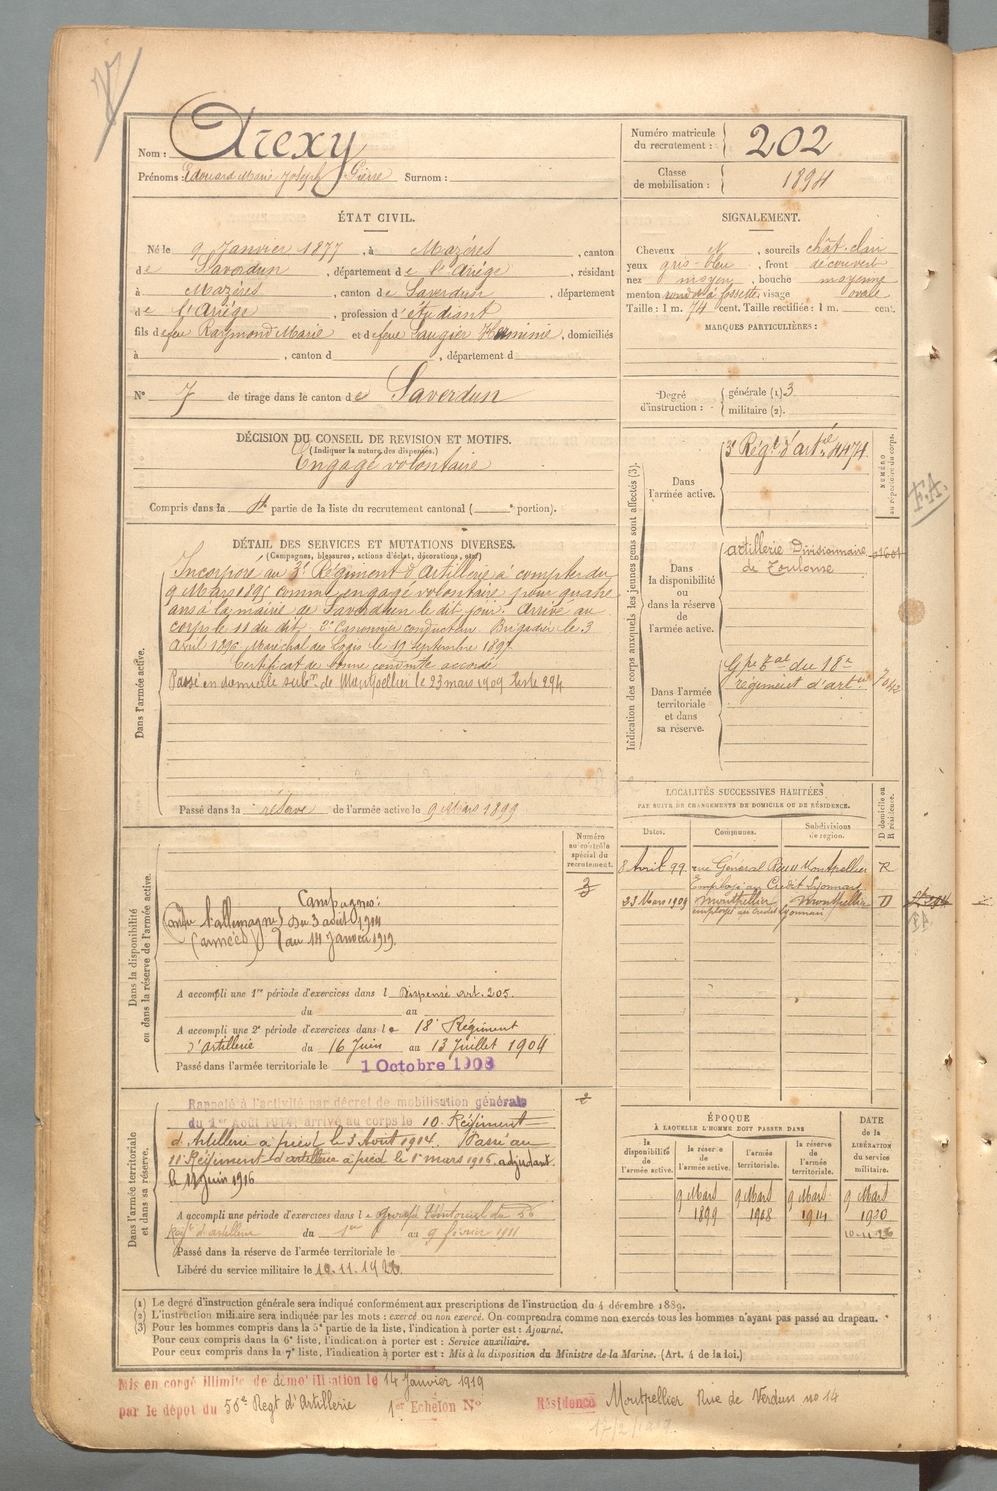 Nom : Arexy
Prénoms : Edouard Marie Joseph Pierre Surnom :
Numéro matricule du recrutement : 202
Classe de mobilisation : 1894
ÉTAT CIVIL.
Né le 9 Janvier 1877, à Mazères, canton
de Saverdun, département de l'Ariège, résidant
à Mazères, canton de Saverdun, département
de l'Ariège, profession d'étudiant
fils de feu Raymond Marie et de feue Laugier Herminie, domiciliés
à , canton d , département d
N° 7 de tirage dans le canton de Saverdun
SIGNALEMENT.
Cheveux , sourcils chât. clair
yeux gris-bleu, front découvert
nez moyen, bouche moyenne
menton rond à fossette, visage ovale
Taille : 1 m. 74 cent. Taille rectifiée : 1 m. cent.
MARQUES PARTICULIÈRES :
Degré d'instruction : générale (1) 3
militaire (2).
DÉCISION DU CONSEIL DE REVISION ET MOTIFS.
(Indiquer la nature des dispenses.)
Engagé volontaire
Compris dans la 4e partie de la liste du recrutement cantonal ( portion).
DÉTAIL DES SERVICES ET MUTATIONS DIVERSES.
(Campagnes, blessures, actions d'éclat, décorations, etc.)
Dans l'armée active.
Incorporé au 3e Régiment d'Artillerie à compter du
9 Mars 1895 comme engagé volontaire pour quatre
ans à la mairie de Saverdun le dit jour. Arrivé au
corps le 11 du dit. 2e Canonnier conducteur. Brigadier le 3
Avril 1896. Maréchal des Logis le 19 septembre 1897
Certificat de bonne conduite accordé
Passé en domicile subon de Montpellier le 23 mars 1909 294
Passé dans la réserve de l'armée active le 9 Mars 1899
Indication des corps auxquels les jeunes gens sont affectés (3).
NUMÉRO au répertoire du corps.
Dans l'armée active.
3e Régt d'artie 4474
Dans la disponibilité ou dans la réserve de l'armée active.
artillerie Divisionnaire
de Toulouse
Dans l'armée territoriale et dans sa réserve.
Gpe Tal du 18e
régiment d'artie
F.A.
LOCALITÉS SUCCESSIVES HABITÉES
PAR SUITE DE CHANGEMENTS DE DOMICILE OU DE RÉSIDENCE.
Dates. Communes. Subdivisions de région. D domicile ou R résidence.
8 Avril 99 rue Général Montpellier R
Employé au Crédit Lyonnais
23 Mars 1909 Montpellier Montpellier D
employé au Crédit Lyonnais
Numéro au contrôle spécial du recrutement.
Dans la disponibilité ou dans la réserve de l'armée active.
Campagnes :
Contre l'allemagne du 3 août 1914
(armées) au 14 Janvier 1919.
A accompli une 1re période d'exercices dans l Dispensé art. 205.
du au
A accompli une 2e période d'exercices dans le 18e Régiment
d'Artillerie du 16 Juin au 13 Juillet 1904
Passé dans l'armée territoriale le 1 Octobre 1908
Dans l'armée territoriale et dans sa réserve.
Rappelé à l'activité par décret de mobilisation générale
du 1er Août 1914, arrivé au corps le 10. Régiment
d'Artillerie à pied le 3 Août 1914. Passé au
11 Régiment d'artillerie à pied le 1er mars 1916. adjudant
le 11 juin 1916
A accompli une période d'exercices dans le Groupe Territorial du 56
Regt d'artillerie du 1er au 9 février 1911
Passé dans la réserve de l'armée territoriale le
Libéré du service militaire le 10.11.1926
ÉPOQUE
À LAQUELLE L'HOMME DOIT PASSER DANS
la disponibilité de l'armée active. la réserve de l'armée active. l'armée territoriale. la réserve de l'armée territoriale.
DATE de la LIBÉRATION du service militaire.
9 Mars 1899 9 Mars 1908 9 Mars 1914 9 Mars 1920
10-11-26
(1) Le degré d'instruction générale sera indiqué conformément aux prescriptions de l'instruction du 4 décembre 1889.
(2) L'instruction militaire sera indiquée par les mots : exercé ou non exercé. On comprendra comme non exercés tous les hommes n'ayant pas passé au drapeau.
(3) Pour les hommes compris dans la 5e partie de la liste, l'indication à porter est : Ajourné.
Pour ceux compris dans la 6e liste, l'indication à porter est : Service auxiliaire.
Pour ceux compris dans la 7e liste, l'indication à porter est : Mis à la disposition du Ministre de la Marine. (Art. 4 de la loi.)
Mis en congé illimité de démobilisation le 14 Janvier 1919
par le dépôt du 56e Regt d'Artillerie 1er Echelon N°
Résidence Montpellier Rue de Verdun no 14